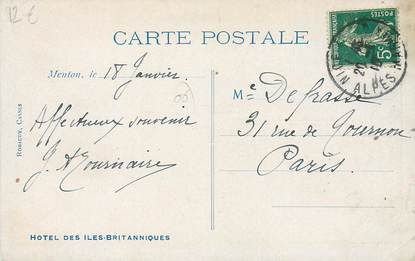 12€
CARTE POSTALE
POSTES
5c
ALPES
Menton, le 18 Janvier.
Affectueux souvenir
Robaudy, Cannes
Me Defrasse
31 rue de Tournon
Paris.
HOTEL DES ILES-BRITANNIQUES